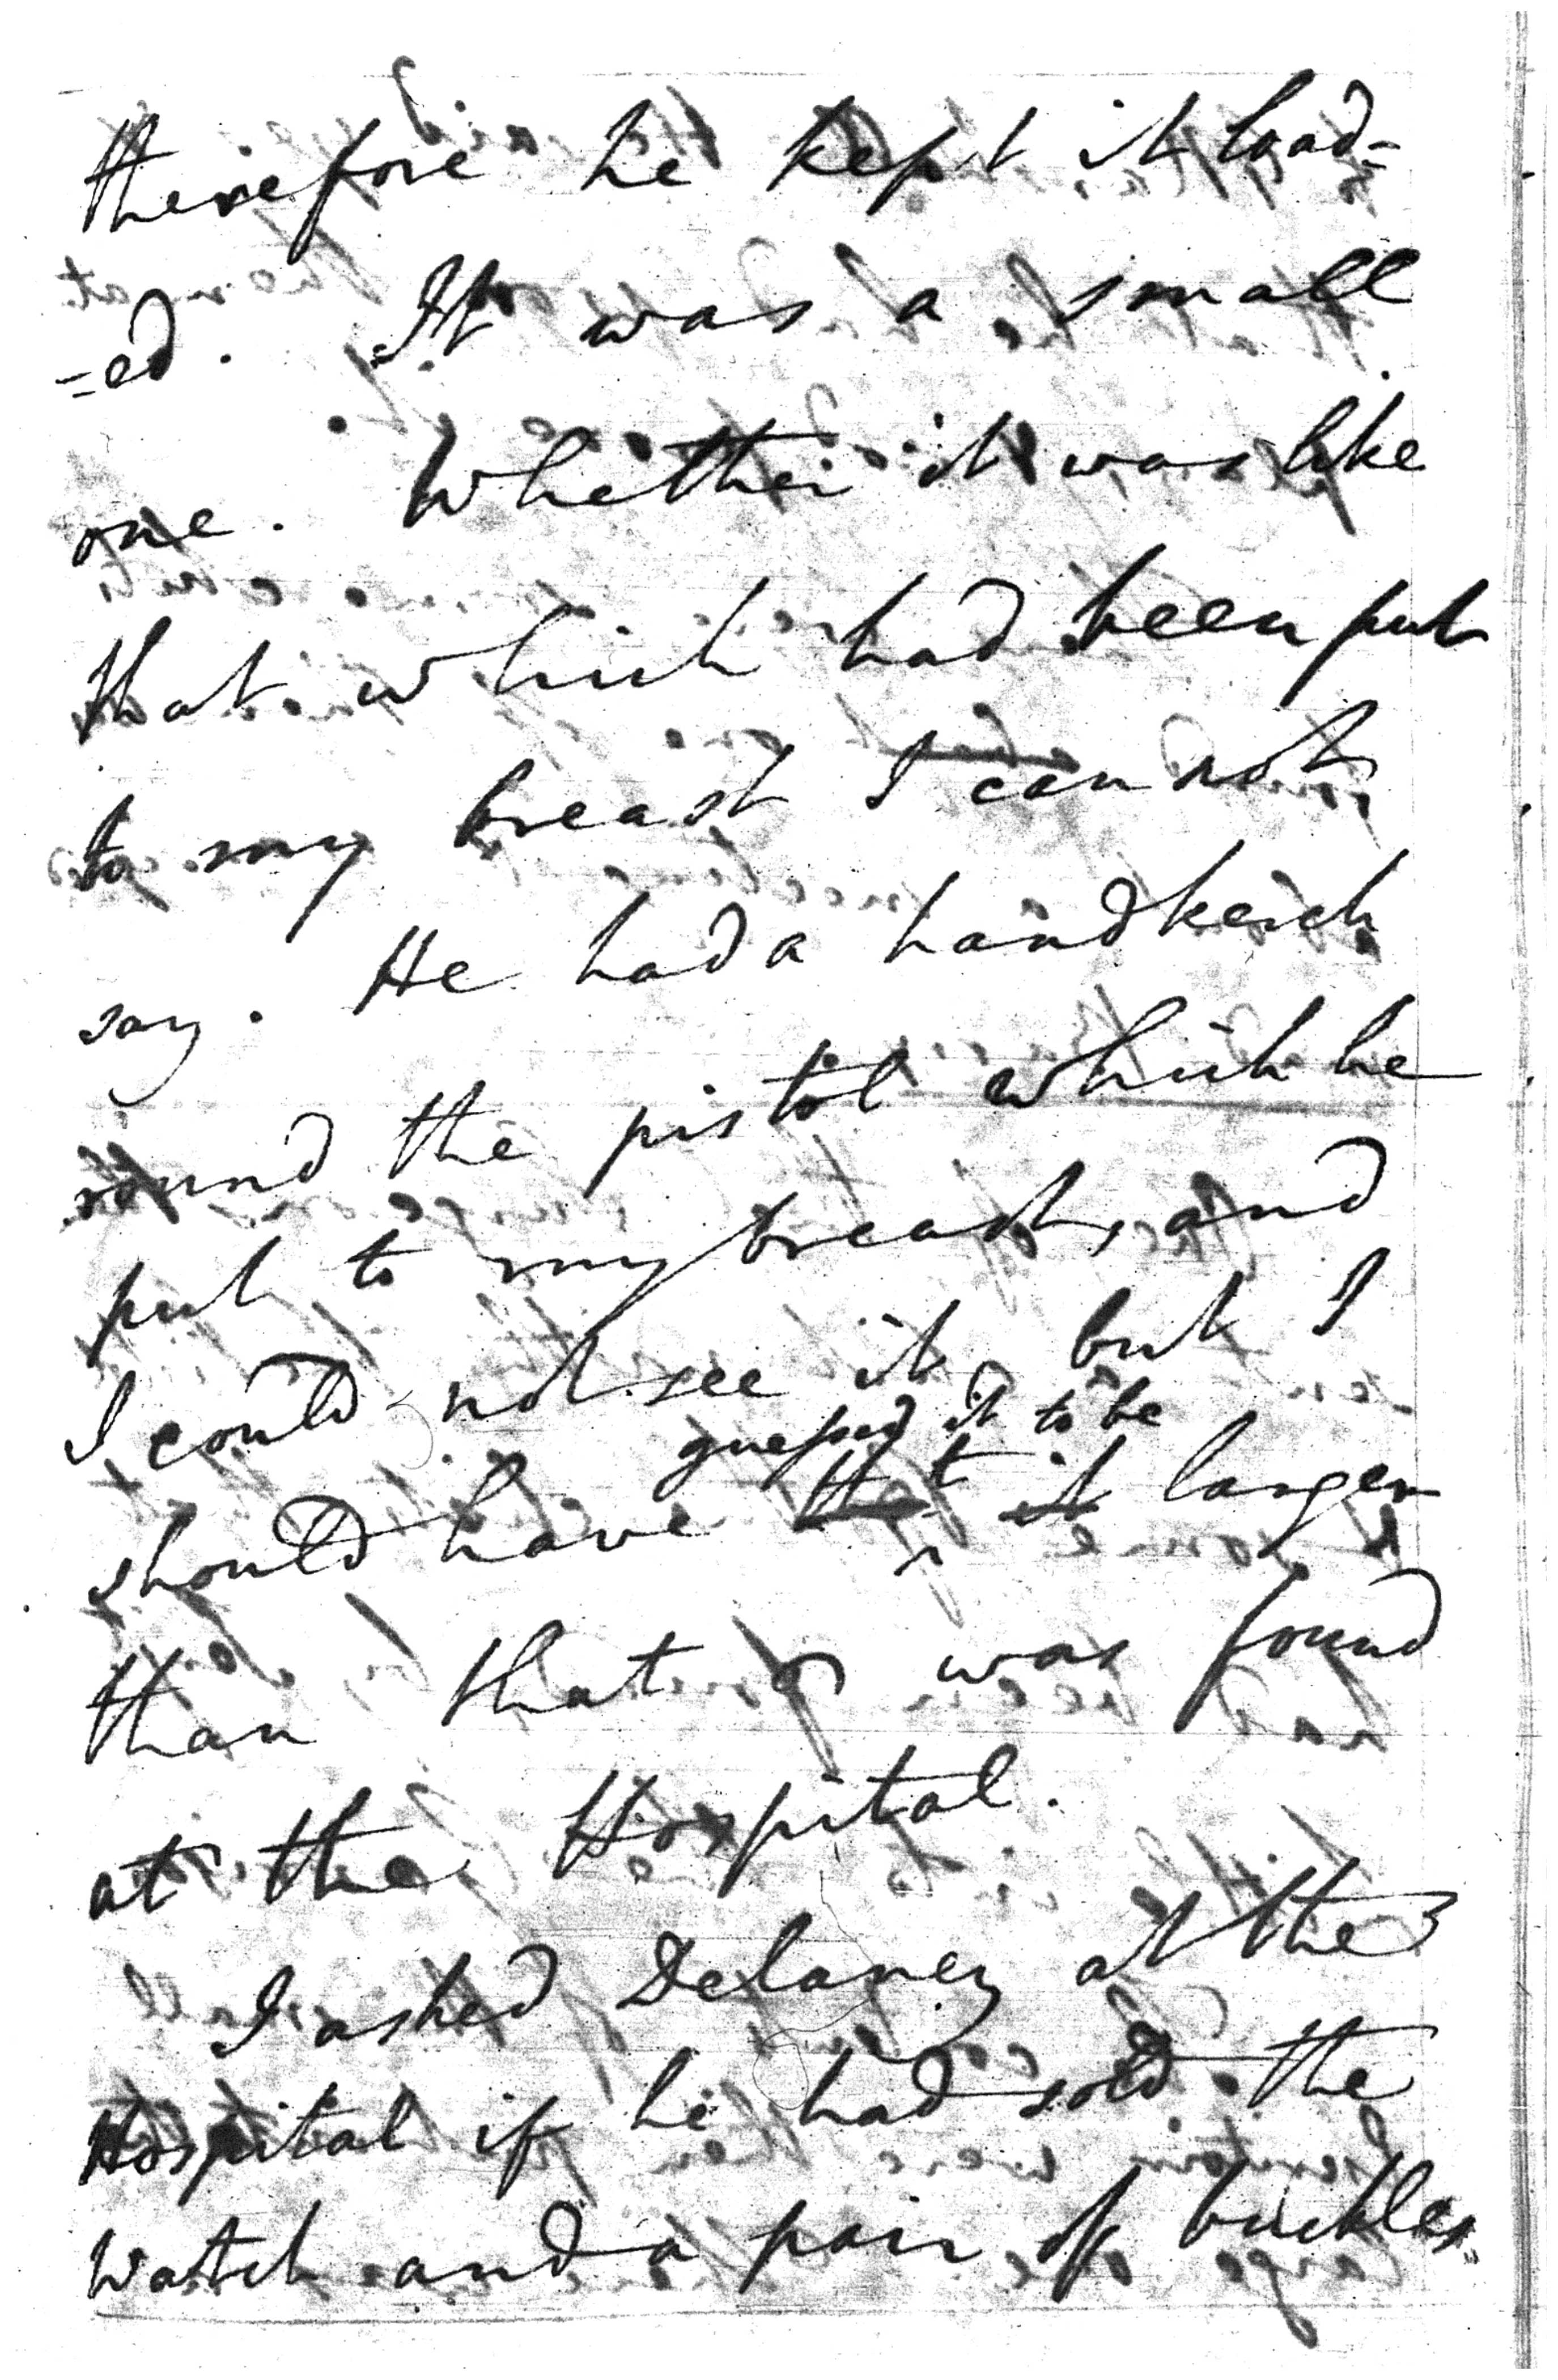 therefore he kept it load=
=ed. It was a small
one. Whether it was like
that which had been put
to my breast I can not
say. He had a handkerch
round the pistol which he
put to my breast, and
I could not see it, but I
guessed it to be
should have tht it larger
than that was found
at the Hospital.
I asked Delaney at the
Hospital if he had sold the
Watch and a pair of buckles